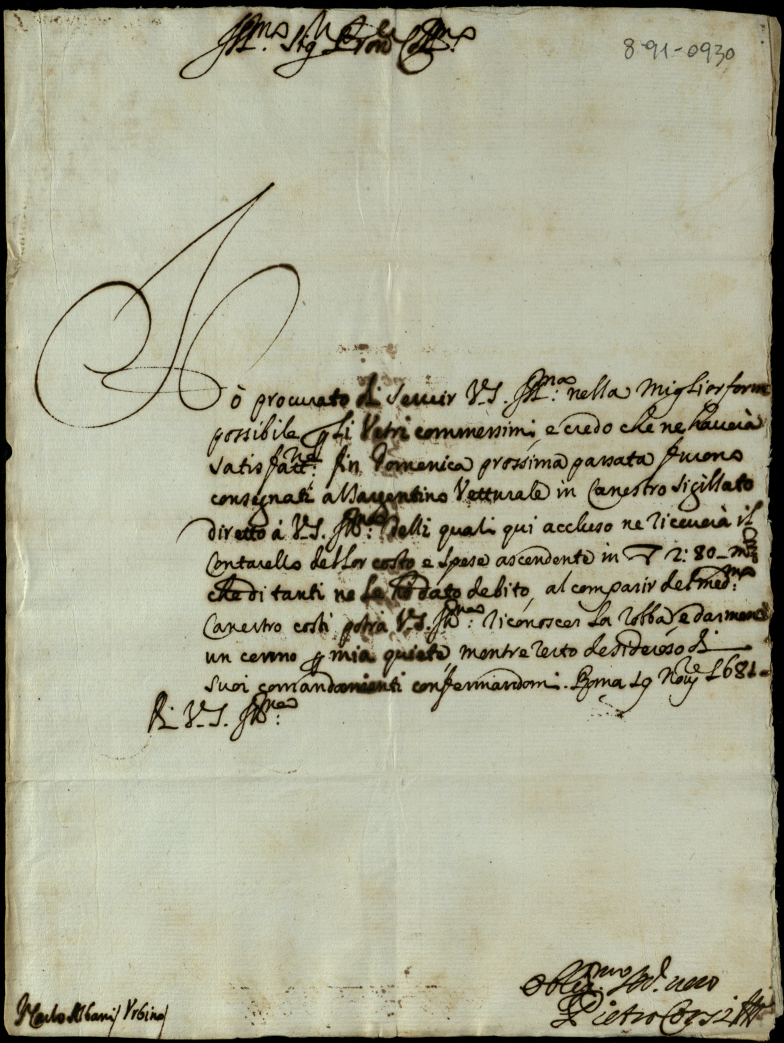 Ill.mo Sig.r Pron Col.mo
8-91-0930
Hò procurato di servir V.S. Ill.ma nella miglior forma
possibile p li Vetri commessimi, e credo che ne haverà
satisfatt.ne fin Domenica prossima passata furono
consegnati all'Argentino Vetturale in Canestro sigillato
diretto à V.S. Ill.ma delli quali qui accluso ne riceverà il
Contarello del lor costo e spese ascendente in ▽ 2:80 m.ta
che di tanti ne le hò dato debito, al comparir del med.mo
Canestro costi potrà V.S. Ill.ma riconoscer la robba, e darmene
un cenno p mia quiete mentre resto desideroso di
suoi comandamenti confermandomi. Roma 19 Nov.re 1681.
Di V.S. Ill.ma
Oblig.mo Ser.re vero
Pietro Corsi
Carlo Albani / Urbino /